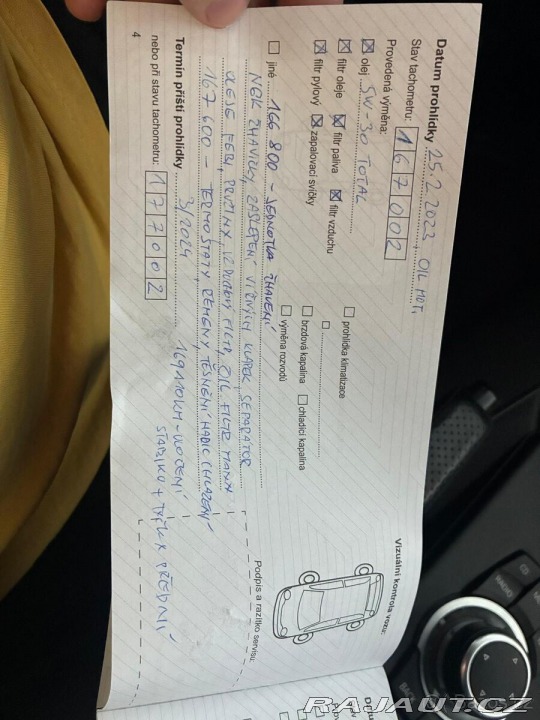 Datum prohlídky 25.2.2023 OIL MOT.
Stav tachometru: 167002
Provedená výměna:
olej 5W-30 TOTAL
filtr oleje filtr paliva filtr vzduchu
filtr pylový zapalovací svíčky
prohlídka klimatizace
brzdová kapalina chladicí kapalina
výměna rozvodů
jiné 166 800 - JEDNOTKA ŽHAVENÍ
ŽHAVIČKY, ZASLEPENÍ VÍŘIVÝCH KLAPEK SEPARÁTOR
OLEJE FEBI, PRUŽINY, VZDUCHOVÝ FILTR, OIL FILTR MANN
167 600 - TERMOSTATY ŘEMENY, TĚSNĚNÍ HADIC CHLAZENÍ
Termín příští prohlídky 3/2024
nebo při stavu tachometru: 177002
169110KM - VÝČENÍ
STABILIZ. + TYČKY PŘEDNÍ
Vizuální kontrola vozu:
Podpis a razítko servisu
4
CD
RADIO
BACK
RAJAUT.CZ